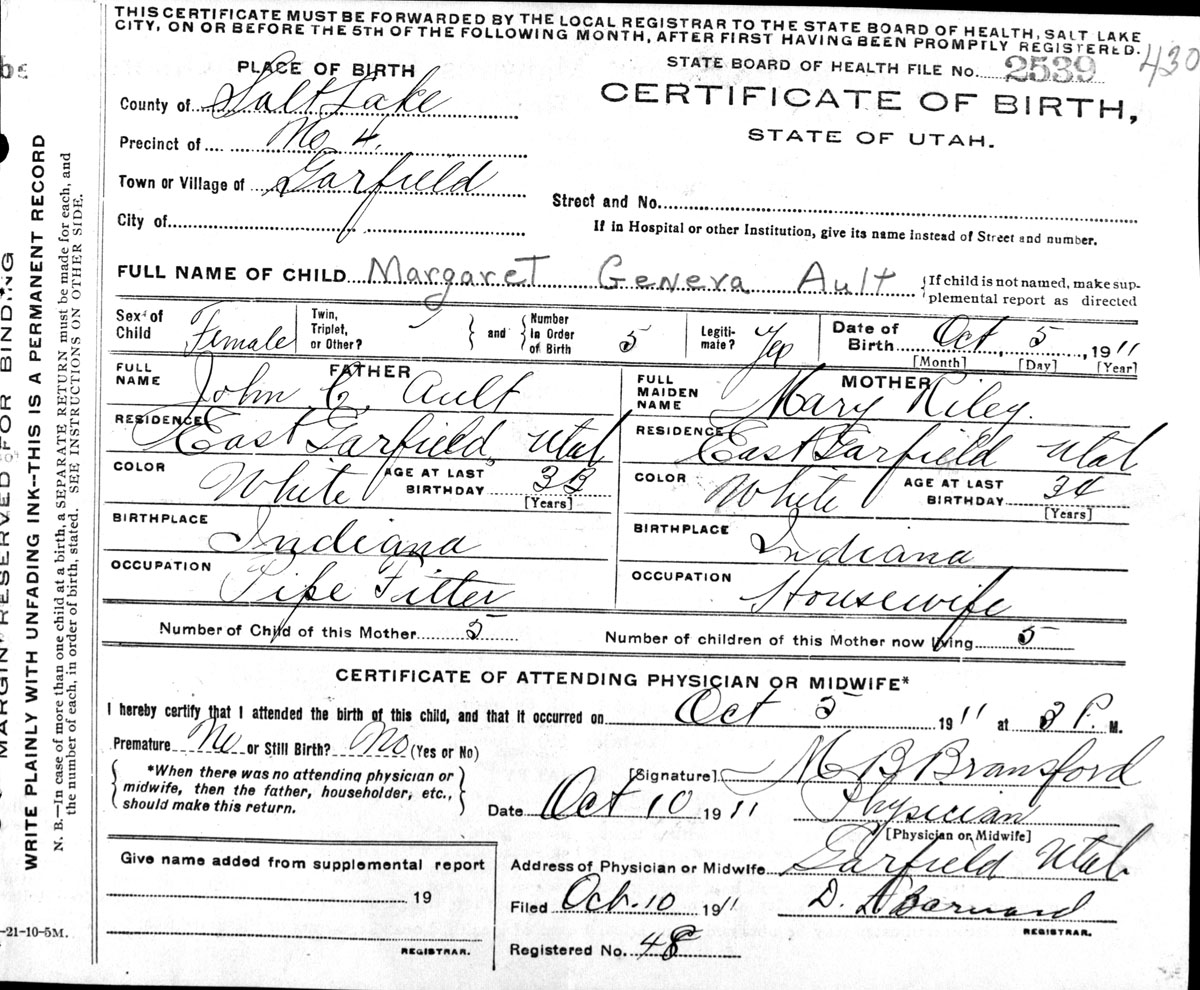 THIS CERTIFICATE MUST BE FORWARDED BY THE LOCAL REGISTRAR TO THE STATE BOARD OF HEALTH, SALT LAKE
CITY, ON OR BEFORE THE 5TH OF THE FOLLOWING MONTH, AFTER FIRST HAVING BEEN PROMPTLY REGISTERED.
STATE BOARD OF HEALTH FILE No. 2539 430
CERTIFICATE OF BIRTH,
STATE OF UTAH.
PLACE OF BIRTH
County of Salt Lake
Precinct of No 4.
Town or Village of Garfield
City of
Street and No.
If in Hospital or other Institution, give its name instead of Street and number.
FULL NAME OF CHILD Margaret Geneva Ault {If child is not named, make sup-
plemental report as directed
Sex of Child Female Twin, Triplet, or Other? and Number in Order of Birth 5 Legiti-mate? Yes Date of Birth Oct 5, 1911
[Month] [Day] [Year]
FATHER
FULL NAME John C. Ault
RESIDENCE East Garfield, Utah
COLOR White AGE AT LAST BIRTHDAY 33
[Years]
BIRTHPLACE Indiana
OCCUPATION Pipe Fitter
MOTHER
FULL MAIDEN NAME Mary Riley.
RESIDENCE East Garfield Utah
COLOR White AGE AT LAST BIRTHDAY 34
[Years]
BIRTHPLACE Indiana
OCCUPATION Housewife
Number of Child of this Mother 5 Number of children of this Mother now living 5
CERTIFICATE OF ATTENDING PHYSICIAN OR MIDWIFE*
I hereby certify that I attended the birth of this child, and that it occurred on Oct 5 1911 at 3 P. M.
Premature No or Still Birth? No (Yes or No)
*When there was no attending physician or
midwife, then the father, householder, etc.,
should make this return.
[Signature] M B Bransford
Date Oct 10 1911 Physician
[Physician or Midwife]
Give name added from supplemental report
19
REGISTRAR.
Address of Physician or Midwife Garfield Utah
Filed Oct. 10 1911 D. A Barnard
REGISTRAR.
Registered No. 48
MARGIN RESERVED FOR BINDING
WRITE PLAINLY WITH UNFADING INK--THIS IS A PERMANENT RECORD
N. B.—In case of more than one child at a birth, a SEPARATE RETURN must be made for each, and
the number of each, in order of birth, stated. SEE INSTRUCTIONS ON OTHER SIDE.
-21-10-5M.